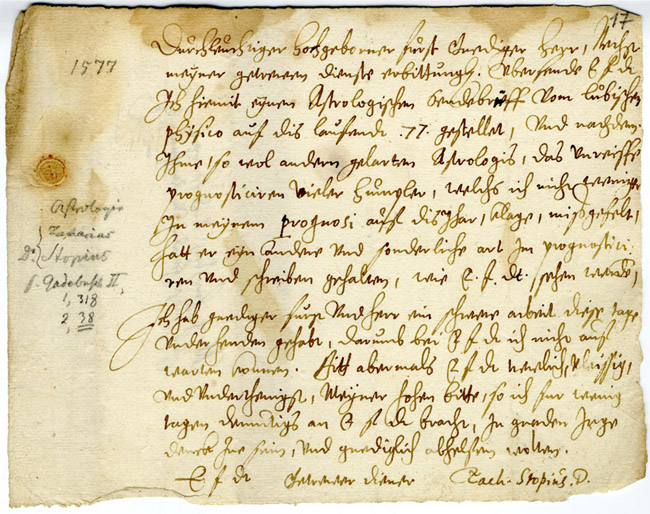 17
1577
Durchleuchtiger hochgeborner fürst Gnediger Herr, Nechst
meyner getrewen dienste erbittungh. Vbersende E f dt
Ich hiemit eynen Astrologischen Sendebrieff vom lubischen
physico auf dis laufende .77. gestellet, Vnd nachdem
Ihme, so wol andern gelarten Astrologis, das vnreiffe
prognosticiren vieler Humpler, welchs ich nicht weiniger
In meynem prognosi aufs dis Jhar, klage, misgefelt,
hatt er eyn andere vnd sonderliche art Im prognostici-
ren vnd schreiben gehalten, wie E. f. dt. sehen werde,
Ich hab gnediger furst vnd herr ein schwere arbeit diese tage
vnder henden gehabt, darumb bei E f dt ich nicht auf
warten konnen. Bitt abermals E f dt trewlich, vleissig,
vnd vnderthenigst, Meyner hohen bitte, so ich fur wenig
tagen demutigs an E f dt bracht, In gnaden Inge
denck Zue sein, vnd gnediglich abhelfen wollen.
E f dt getrewer diener Zach. Stopius. D.
Astrologie
Zacharias
Dr Stopius
s. Gadebusch II,
1, 318
2, 38